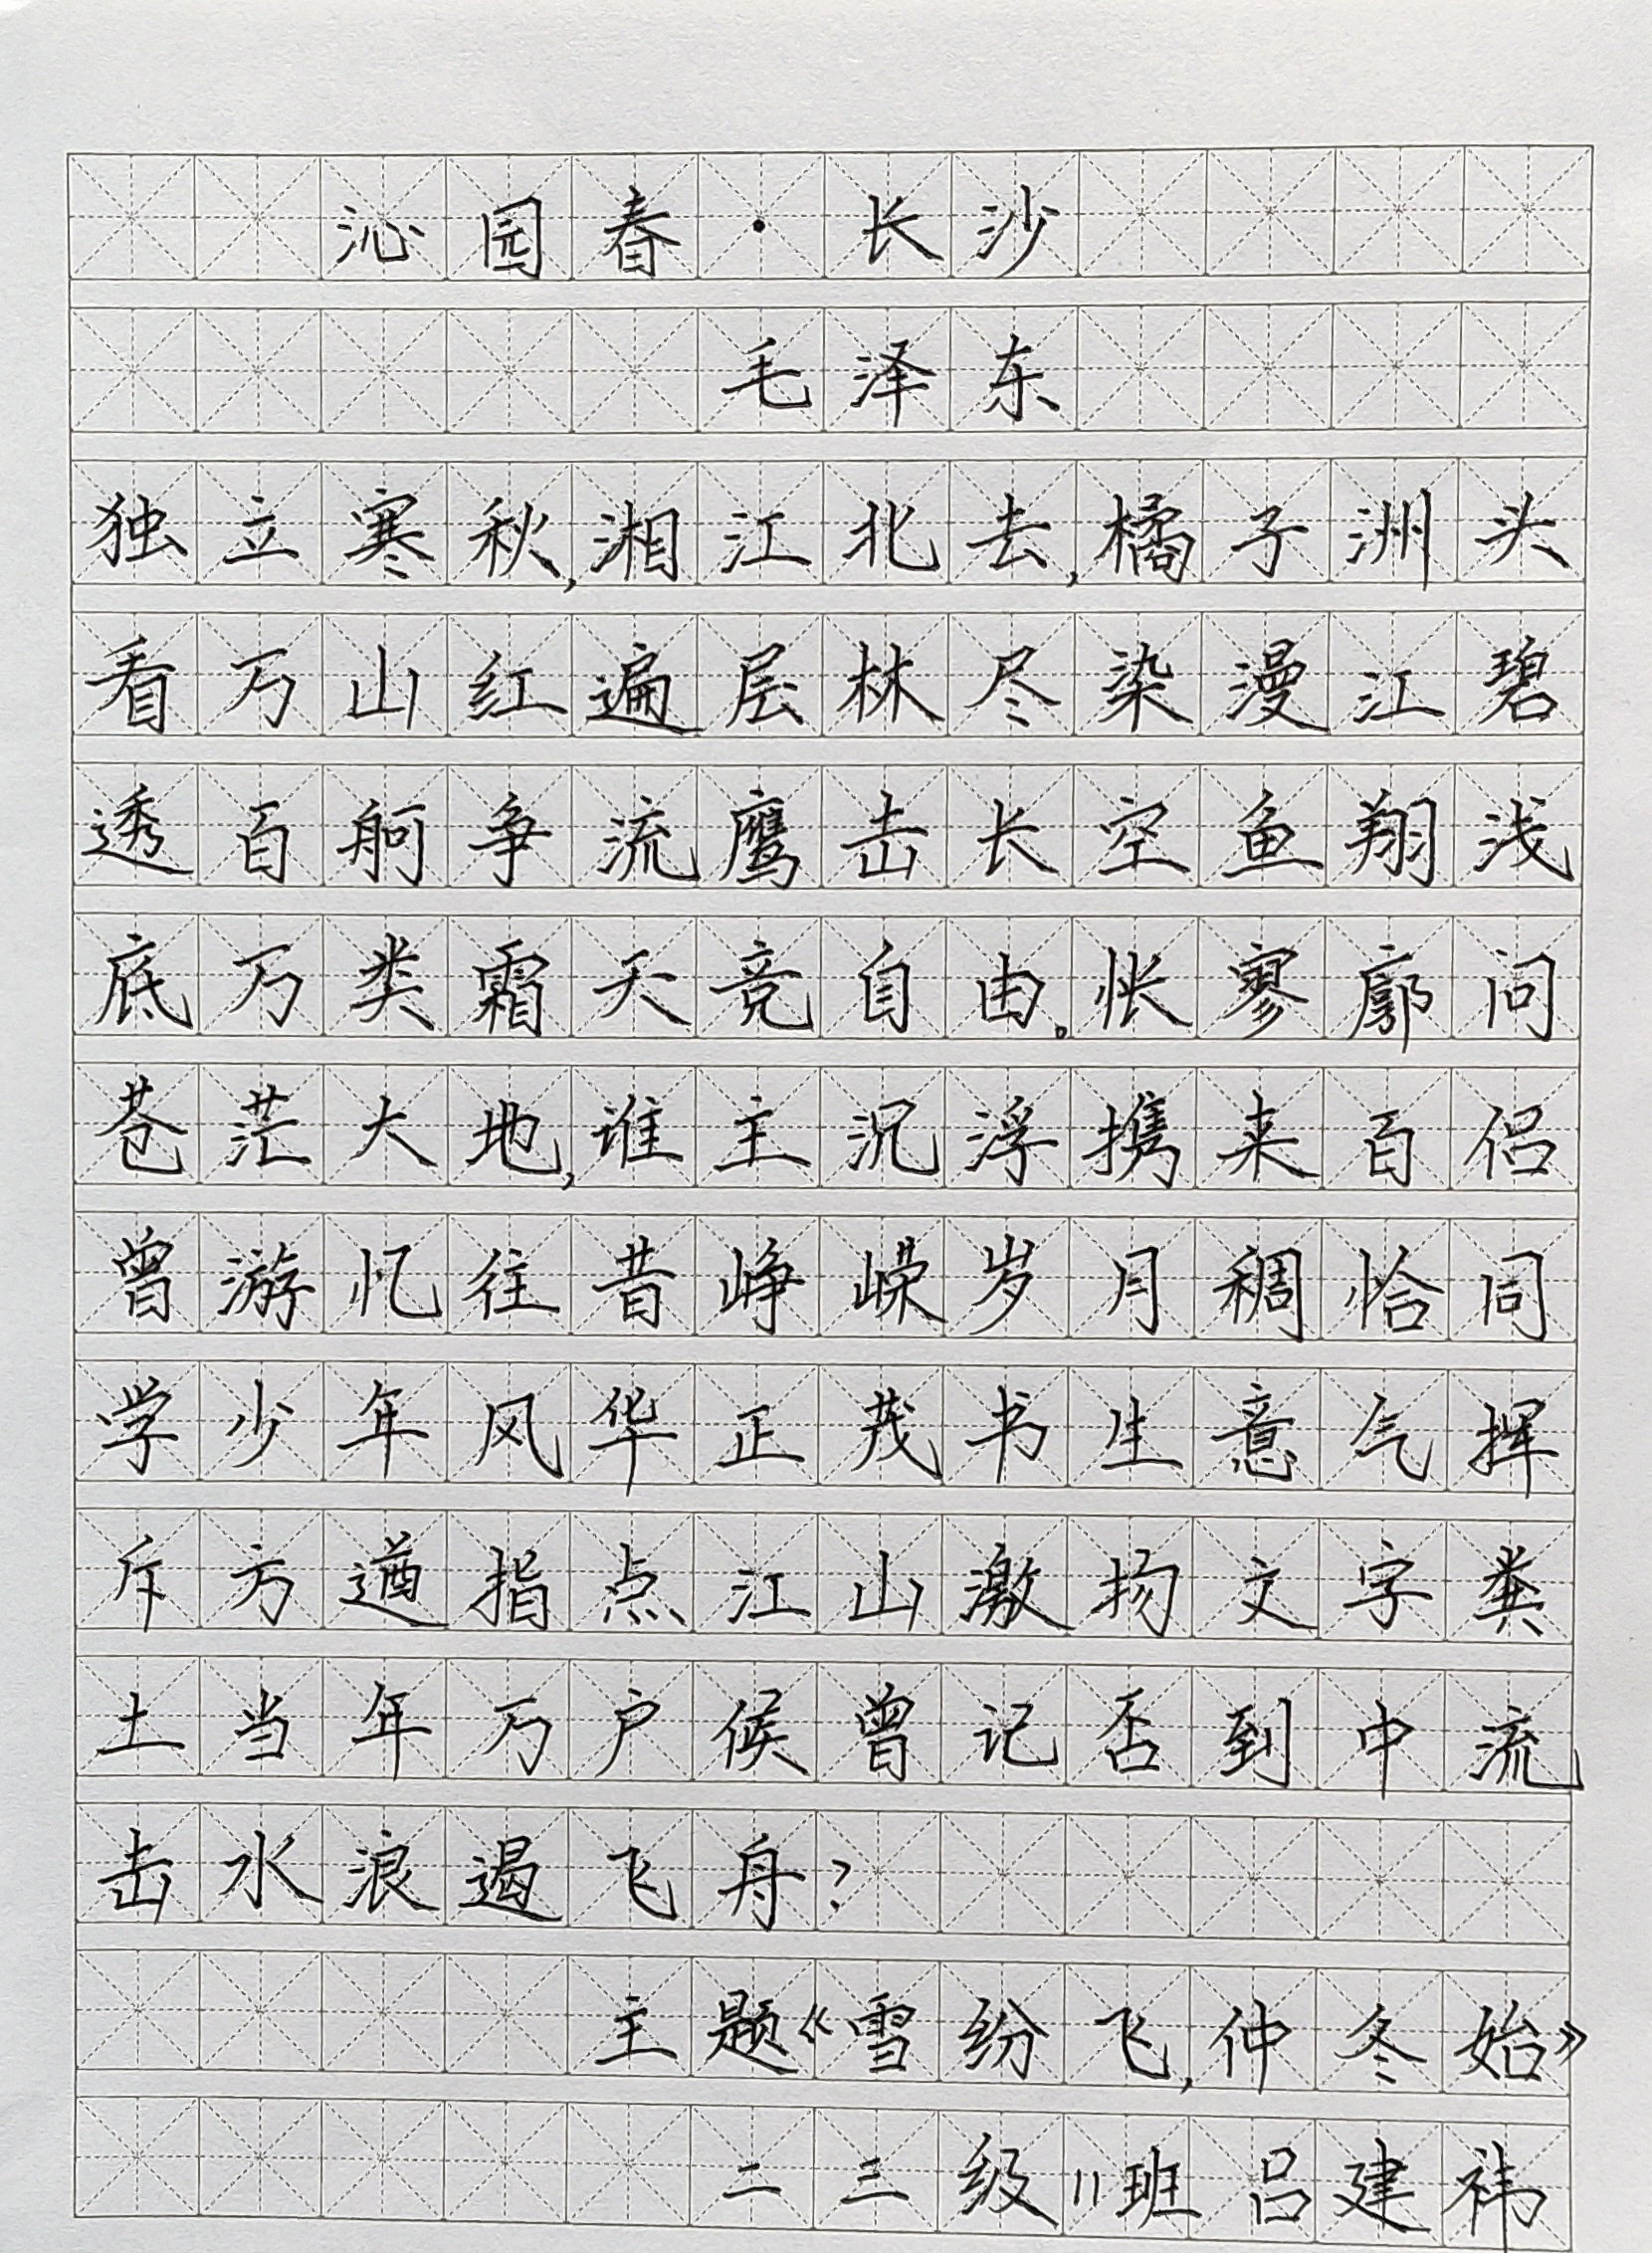 沁园春·长沙
毛泽东
独立寒秋,湘江北去,橘子洲头
看万山红遍层林尽染漫江碧
透百舸争流鹰击长空鱼翔浅
底万类霜天竞自由。怅寥廓问
苍茫大地,谁主沉浮携来百侣
曾游忆往昔峥嵘岁月稠恰同
学少年风华正茂书生意气挥
斥方遒指点江山激扬文字粪
土当年万户侯曾记否到中流
击水浪遏飞舟?
主题《雪纷飞,仲冬始》
二三级11班吕建祎